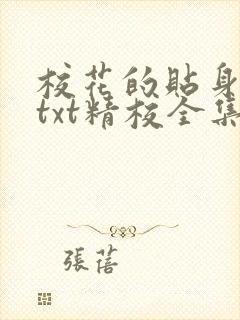 校花的貼身
txt精校全集
張蓓